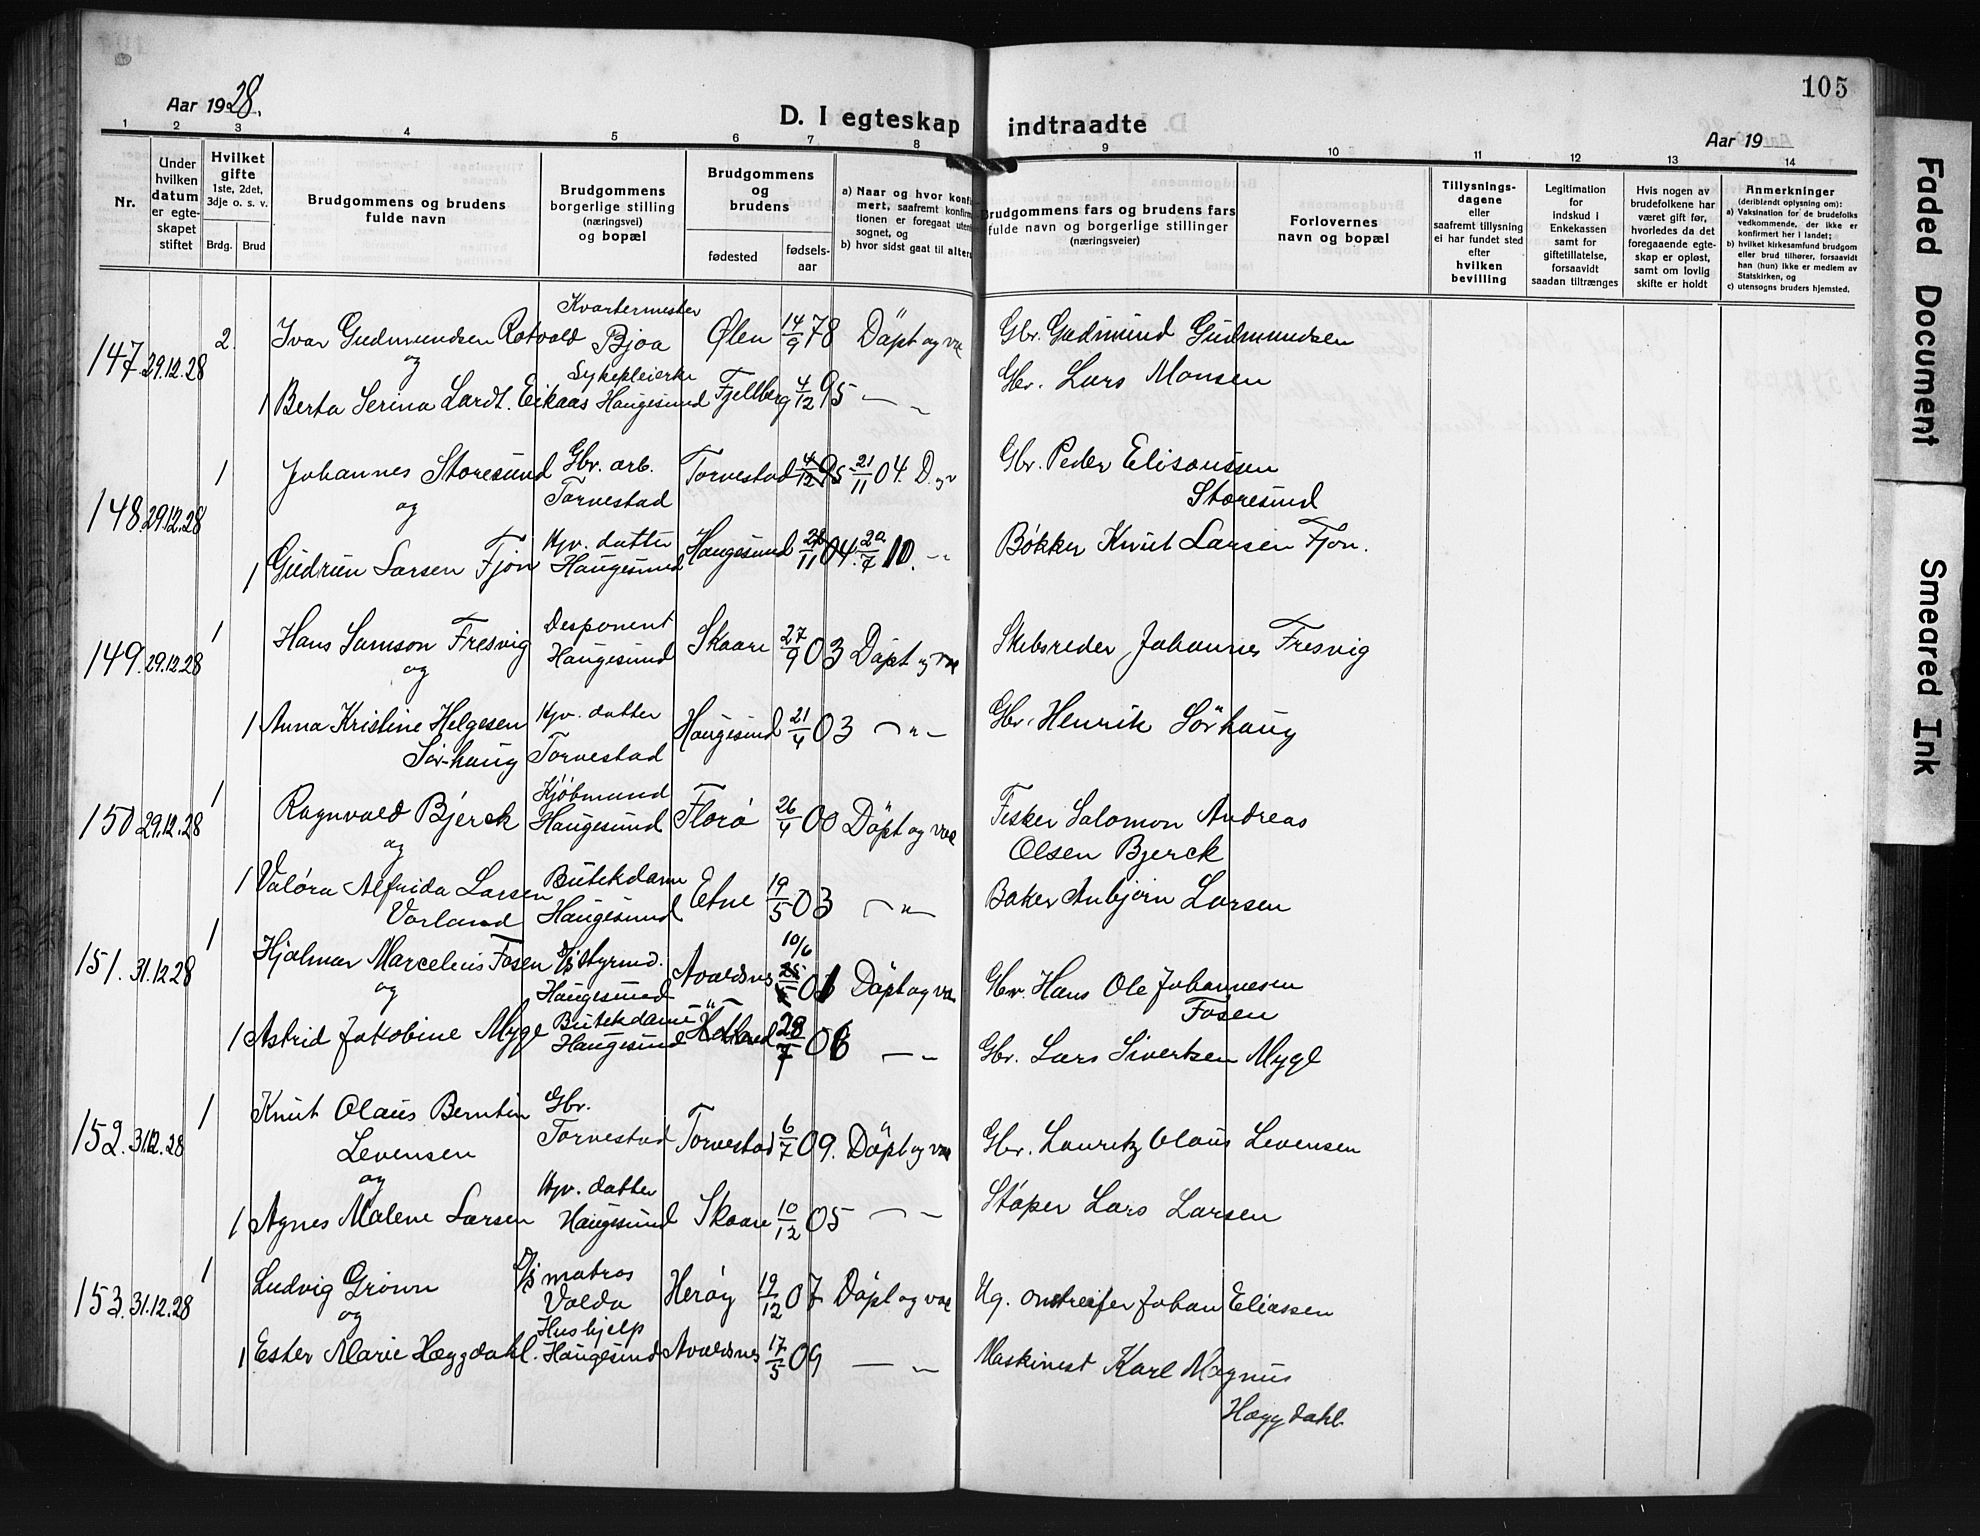 Aar 1928.
D. I egteskap indtraadte
105
Aar 19
1 2 3 4 5 6 7 8 9 10 11 12 13 14
Nr.
Under hvilken datum er egteskapet stiftet
Hvilket gifte 1ste, 2det, 3dje o. s. v.
Brdg. Brud
Brudgommens og brudens fulde navn
Brudgommens borgerlige stilling (næringsvei) og bopæl
Brudgommens og brudens
fødested fødsels-aar
a) Naar og hvor konfirmert, saafremt
b) hvor sidst gaat til alters
Brudgommens fars og brudens fars fulde navn og borgerlige stillinger (næringsveier)
Forlovernes navn og bopæl
Tillysningsdagene eller saafremt tillysning ei har fundet sted efter hvilken bevilling
Legitimation for indskud i Enkekassen samt for giftetillatelse, forsaavidt saadan tiltrænges
Hvis nogen av brudefolkene har været gift før, hvorledes da det foregaaende egteskap er opløst, samt om lovlig skifte er holdt
Anmerkninger (deriblandt oplysning om):
a) Vaksination for de brudefolks vedkommende, der ikke er konfirmert her i landet;
b) hvilket kirkesamfund brudgom eller brud tilhører, forsaavidt han (hun) ikke er medlem av Statskirken, og
c) utensogns bruders hjemsted.
147. 29.12.28 2. Ivar Gudmundsen Rotvold Kvartermester Bjoa Ølen 14/9 78 Döpt og vac Gbr. Gudmund Gudmundsen
og
1 Berta Serina Lardt. Eikaas Sykepleierke Haugesund Fjellberg 4/12 95 — „ Gbr. Lars Monsen
148. 29.12.28 1 Johannes Storesund Gbr. arb. Torvestad Torvestad 4/12 95 21/11 04. D. og v Gbr. Peder Elisaussen Storesund
og
1 Gudrun Larsen Fjon Hjv. datter Haugesund Haugesund 21/11 04. 20/7 10. — „ Bøkker Knut Larsen Fjon.
149. 29.12.28 1 Hans Samson Fresvig Desponent Haugesund Skaare 27/9 03 Döpt og vac Skibsreder Johannes Fresvig
og
1 Anna Kristine Helgesen Sør-haug Hjv. datter Torvestad Haugesund 21/4 03 — „ — Gbr. Henrik Sørhaug
150 29.12.28 1 Ragnvald Bjerck Kjøbmand Haugesund Florø 26/4 00 Döpt og vac Fisker Salomon Andreas Olsen Bjerck
og
1 Valóra Alfrida Larsen Vorland Butekdame Haugesund Etne 19/5 03 — „ — Baker Anbjørn Larsen
151. 31.12.28 1 Hjalmar Marcelius Fosen Styrmd. Haugesund Avaldsnes 10/6 01 Döpt og va Gbr. Hans Ole Johannesen Fosen
og
1 Astrid Jakobine Mygl Butekdame Haugesund Hetland 28/7 06 — „ Gbr. Lars Sivertsen Mygl
152. 31.12.28 1 Knut Olaus Berntin Levensen Gbr. Torvestad Torvestad 6/7 09. Döpt og vac Gbr. Lauritz Olaus Levensen
og
1 Agnes Malene Larsen Hjv. datter Haugesund Skaare 10/12 05 — „ Støper Lars Larsen
153. 31.12.28 1 Ludvig Grönn matros Volda Herøy 19/12 07 Döpt og vac Ug. Johan Eliassen
og
1 Ester Marie Hæggdahl. Hushjelp Haugesund Avaldsnes 17/5 09 — „ Maskinist Karl Magnus Hæggdahl
Faded Document
Smeared Ink